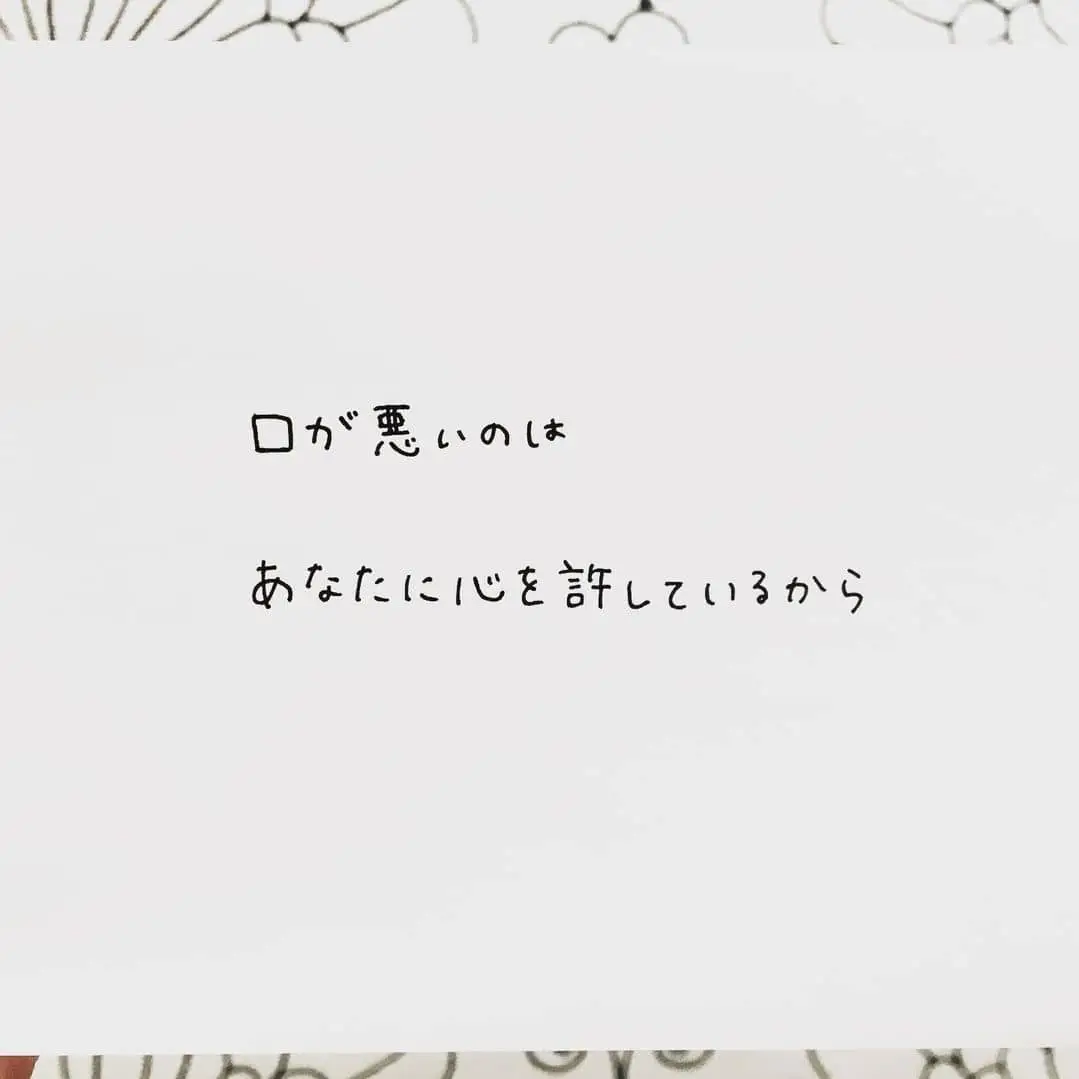 口が悪いのは
あなたに心を許しているから